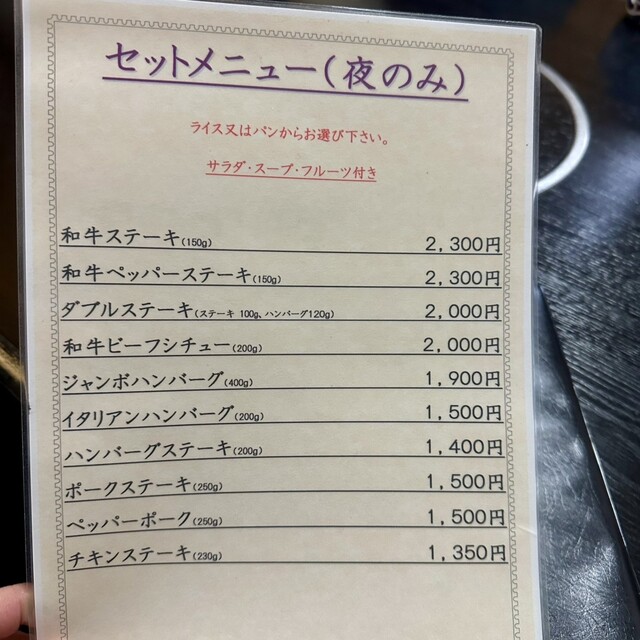 セットメニュー(夜のみ)
ライス又はパンからお選び下さい。
サラダ・スープ・フルーツ付き
和牛ステーキ(150g) 2,300円
和牛ペッパーステーキ(150g) 2,300円
ダブルステーキ(ステーキ 100g、ハンバーグ120g) 2,000円
和牛ビーフシチュー(200g) 2,000円
ジャンボハンバーグ(400g) 1,900円
イタリアンハンバーグ(200g) 1,500円
ハンバーグステーキ(200g) 1,400円
ポークステーキ(250g) 1,500円
ペッパーポーク(250g) 1,500円
チキンステーキ(230g) 1,350円